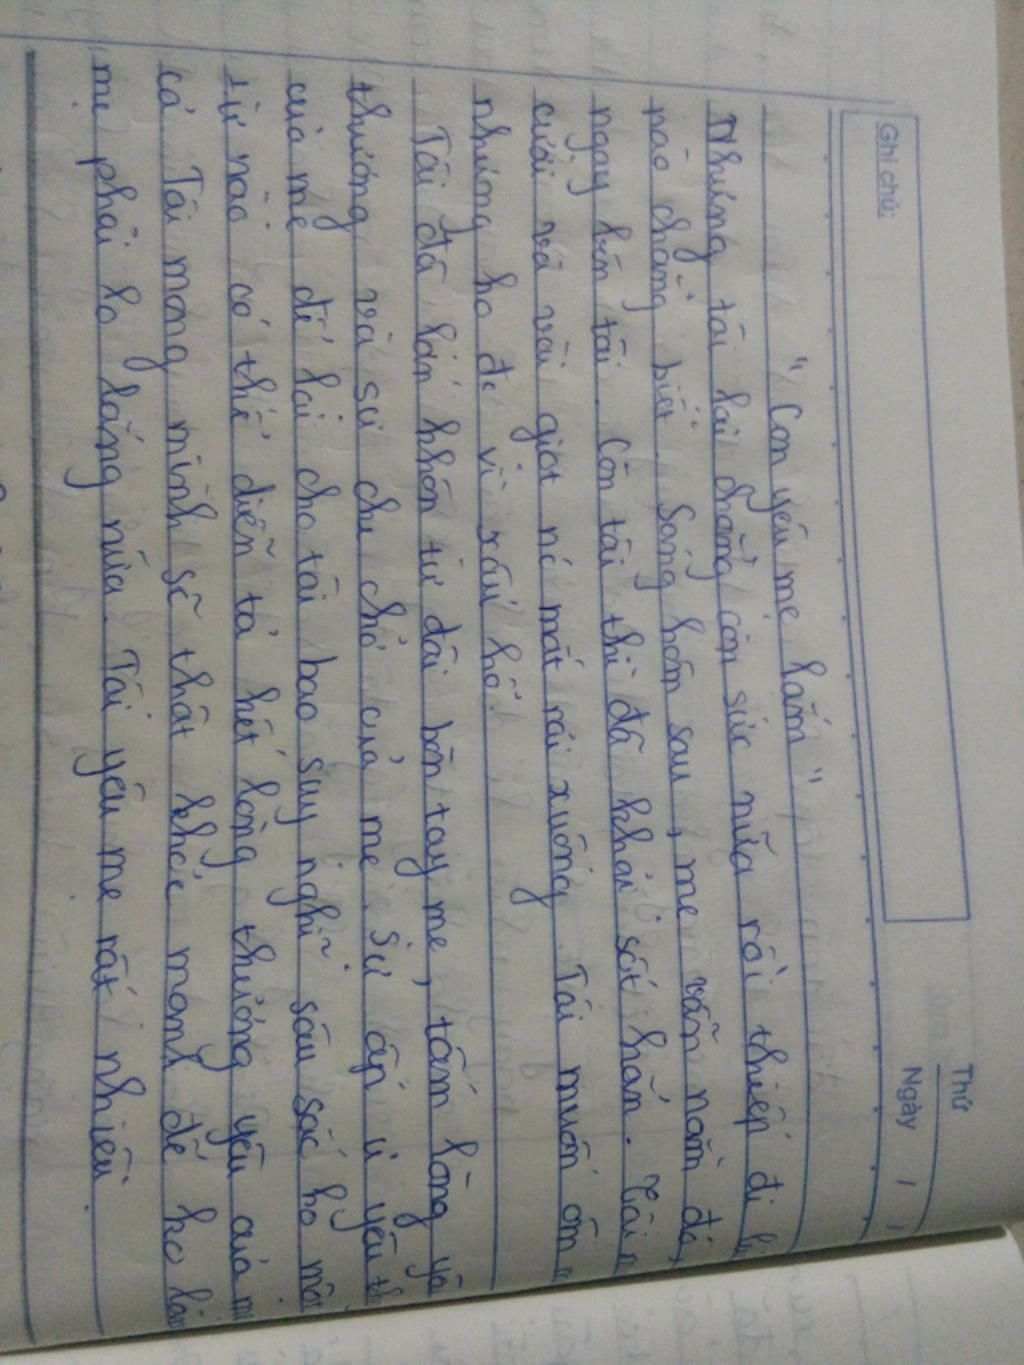 Ghi chú:
Thứ
Ngày / /
"Con yêu mẹ lắm"
Nhưng tôi lại chẳng còn sức nữa rồi thiếp đi
nào chẳng biết. Sáng hôm sau, mẹ vẫn nằm đó,
ngay bên tôi. Còn tôi thì đã khỏi sốt hẳn. Tôi
cười và vài giọt nc mắt rơi xuống. Tôi muốn ôm
nhưng ko đc vì xấu hổ.
Tôi đã lớn khôn từ đôi bàn tay mẹ, tấm lòng yêu
thương và sự che chở của mẹ. Sự ấp ủ yêu
của mẹ để lại cho tôi bao suy nghĩ sâu sắc ko một
từ nào có thể diễn tả hết lòng thương yêu của
cả. Tôi mong mình sẽ thật khỏe mạnh để ko làm
mẹ phải lo lắng nữa. Tôi yêu mẹ rất nhiều.